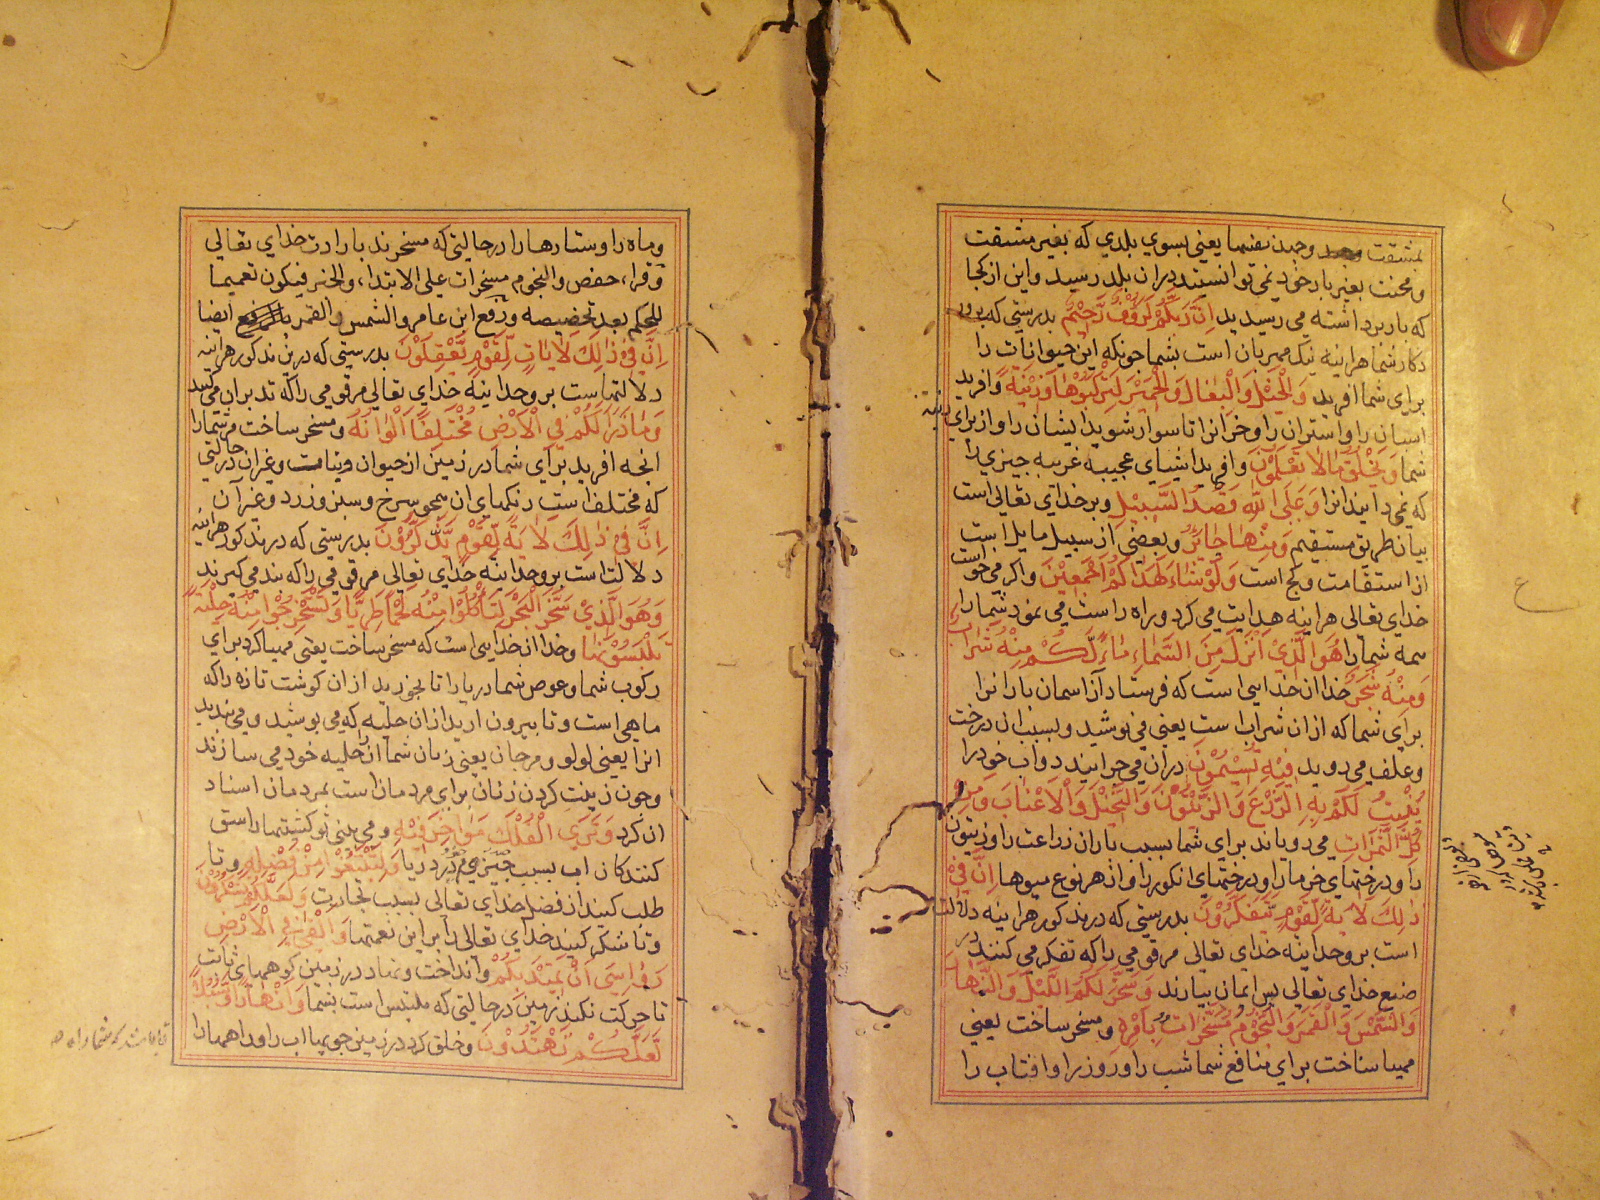 بمشقت وجهد وجهدن نفسها یعنی بسوی بلدی که بغیر مشقت
و محنت بغیر بار خود نمی توانستند دران بلد رسید و این از کجا
که بار برداشته می رسیدید اِنَّ رَبَّكُمْ لَرَؤُفٌ رَّحِيْمٌ بدرستی که پرور
دکار شما هراینه نیک مهربان است بشما جونکه این حیوانات را
برای شما افرید وَالْخَيْلَ وَالْبِغَالَ وَالْحَمِيْرَ لِتَرْكَبُوْهَا وَزِيْنَةً و افرید
اسپان را و استران را و خران را تا سوار شوید ایشان را و از برای زینة
شما وَيَخْلُقُ مَا لَا تَعْلَمُوْنَ و افرید اشیای عجیبه غریبه جیزی را
که نمی دانید انرا وَعَلَى اللّٰهِ قَصْدُ السَّبِيْلِ و بر خدای تعالی است
بیان طریق مستقیم وَمِنْهَا جَائِرٌ و بعضی از سبیل مایل است
از استقامت و کج است وَلَوْ شَاءَ لَهَدٰىكُمْ اَجْمَعِيْنَ و اکر می خواست
خدای تعالی هراینه هدایت می کرد و راه راست می نمود شما را
همه شما را هُوَ الَّذِيْ اَنْزَلَ مِنَ السَّمَاءِ مَاءً لَّكُمْ مِنْهُ شَرَابٌ
وَمِنْهُ شَجَرٌ خدا ان خدایی است که فرستاد از اسمان باران را
برای شما که ازان شراب است یعنی می نوشید و بسبب ان درخت
و علف می روید فِيْهِ تُسِيْمُوْنَ دران می جرانید دواب خود را
يُنْبِتُ لَكُمْ بِهِ الزَّرْعَ وَالزَّيْتُوْنَ وَالنَّخِيْلَ وَالْاَعْنَابَ وَمِنْ
كُلِّ الثَّمَرَاتِ می رویاند برای شما بسبب باران زراعت را و زیتون
را و درختهای خرما را و درختهای انکور را و از هر نوع میوها اِنَّ فِيْ
ذٰلِكَ لَاٰيَةً لِّقَوْمٍ يَّتَفَكَّرُوْنَ بدرستی که در مذکور هراینه دلالت
است بر وحدانیه خدای تعالی مر قومی را که تفکر می کنند در
صنع خدای تعالی پس ایمان بیارند وَسَخَّرَ لَكُمُ اللَّيْلَ وَالنَّهَارَ
وَالشَّمْسَ وَالْقَمَرَ وَالنُّجُوْمُ مُسَخَّرَاتٌ بِاَمْرِهٖ و مسخر ساخت یعنی
مهیا ساخت برای منافع شما شب را و روز را و افتاب را
و ماه را و ستارها را در حالیتی که مسخرند بارادت خدای تعالی
و قراء حفص والنجوم مسخرات علی الابتداء والخبر فیکون تعمیما
للحکم بعد تخصیصه و رفع ابن عامر والشمس والقمر ایضا
اِنَّ فِيْ ذٰلِكَ لَاٰيَاتٍ لِّقَوْمٍ يَّعْقِلُوْنَ بدرستی که درین مذکور هراینه
دلالتهاست بر وحدانیه خدای تعالی مر قومی را که تدبران می کنند
وَمَا ذَرَاَ لَكُمْ فِي الْاَرْضِ مُخْتَلِفًا اَلْوَانُهٗ و مسخر ساخت مر شما را
انجه افرید برای شما در زمین از حیوان و نبات و غیران در حالتی
که مختلف است رنکهای ان همجو سرخ و سبز و زرد و غیران
اِنَّ فِيْ ذٰلِكَ لَاٰيَةً لِّقَوْمٍ يَّذَّكَّرُوْنَ بدرستی که در مذکور هراینه
دلالت است بر وحدانیه خدای تعالی مر قومی را که پند می کیرند
وَهُوَ الَّذِيْ سَخَّرَ الْبَحْرَ لِتَأْكُلُوْا مِنْهُ لَحْمًا طَرِيًّا وَّتَسْتَخْرِجُوْا مِنْهُ حِلْيَةً
تَلْبَسُوْنَهَا و خدا ان خدایی است که مسخر ساخت یعنی مهیا کرد برای
رکوب شما و غوص شما دریا را تا بخورید ازان کوشت تازه را که
ماهی است و تا بیرون ارید ازان حلیه که می پوشید و می بندید
انرا یعنی لولو و مرجان یعنی زنان شما ازان حلیه خود می سازند
و جون زینت کردن زنان برای مردمان است بمردمان اسناد
ان کرد وَتَرَى الْفُلْكَ مَوَاخِرَ فِيْهِ و می بینی تو کشتیها را شق
کنندکان اب بسبب در دریا وَلِتَبْتَغُوْا مِنْ فَضْلِهٖ و تا
طلب کنید از فضل خدای تعالی بسبب تجارت وَلَعَلَّكُمْ تَشْكُرُوْنَ
و تا شکر کنید خدای تعالی را بر این نعمتها وَاَلْقٰى فِي الْاَرْضِ
رَوَاسِيَ اَنْ تَمِيْدَ بِكُمْ و انداخت و نهاد در زمین کوههای ثابت
تا حرکت نکند زمین در حالیتی که ملتبس است بشما وَاَنْهَارًا وَّسُبُلًا
لَّعَلَّكُمْ تَهْتَدُوْنَ و خلق کرد در زمین جویها اب را و راهها را